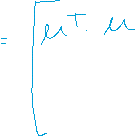 = [ u^T. u